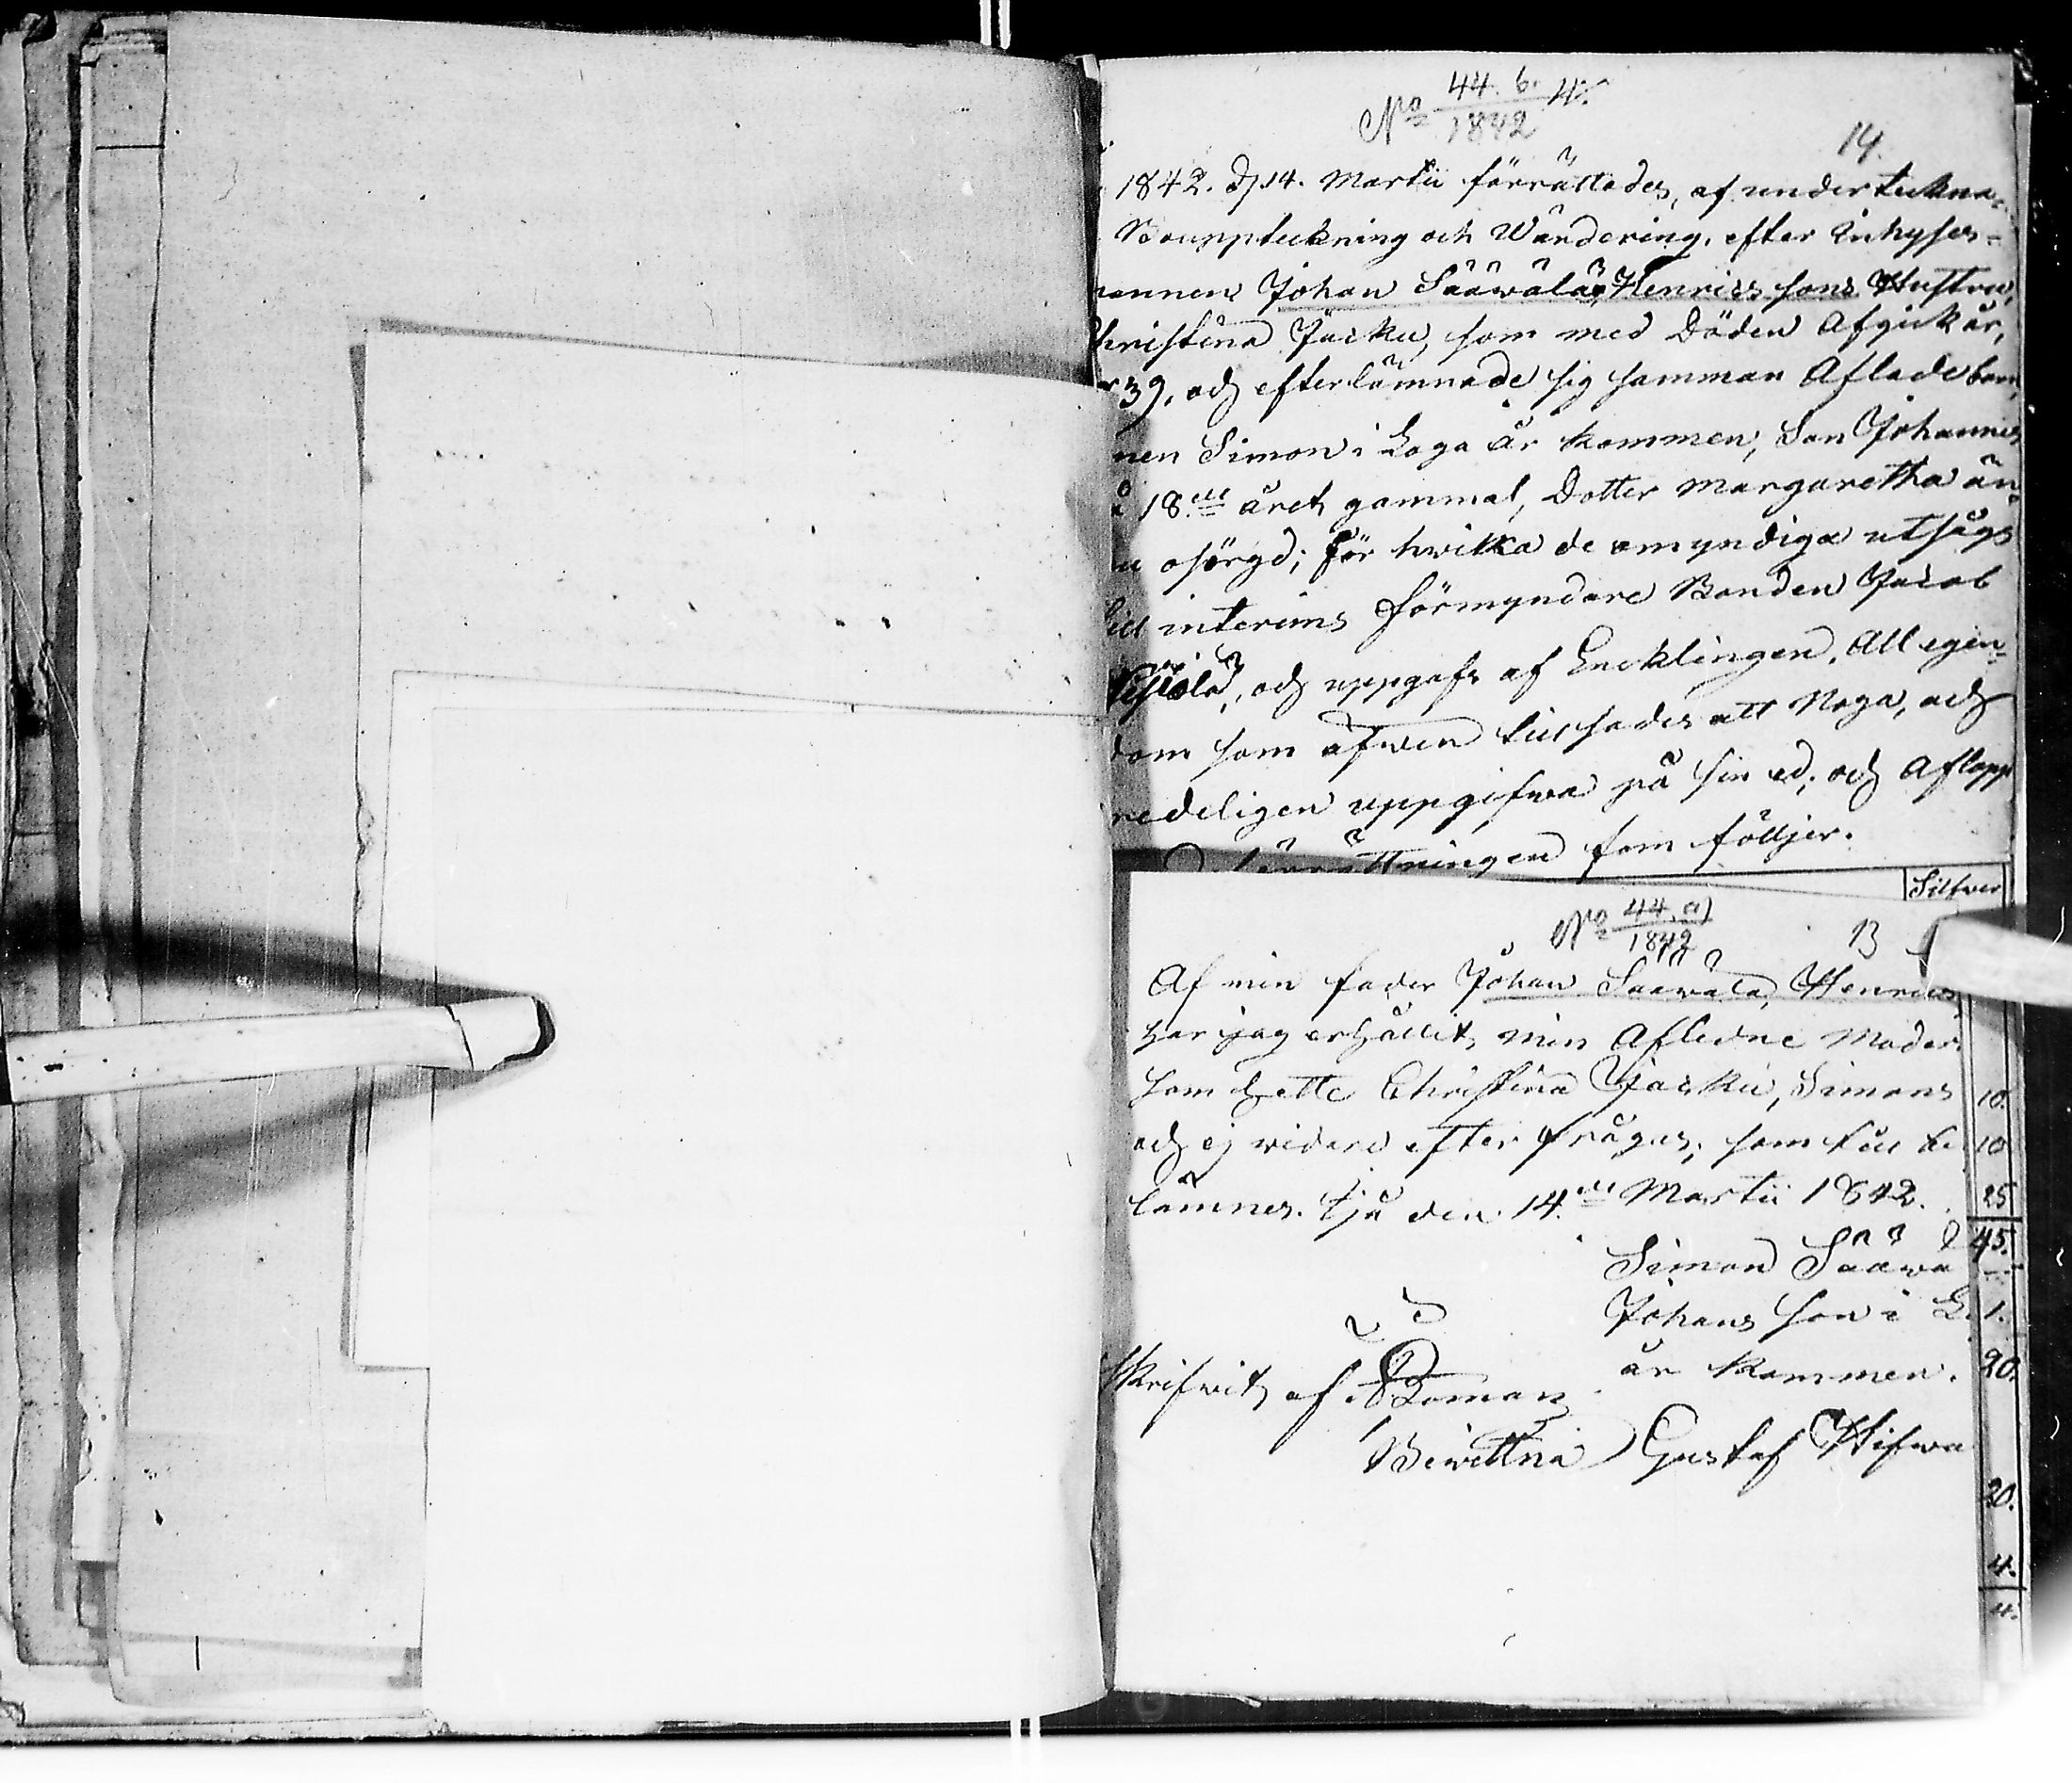 No 44. b. 4.
1842
14.
1842. d 14. Martii förrättades, af underteckna
Boupptekning och Wärdering, efter Inhyses-
mannens Johan Sääwälä, Henrics sons Hustru,
Christina Jacku, som med Döden Afgick år,
39, och efterlämnade sig samman Aflade barn,
nen Simon i Laga år kommen, Son Johannis
18.de året gammal, Dotter Margaretha än-
nu osörgd; för hvilka de omyndiga utsågs
til interims Förmyndare Bonden Jacob
och uppgafs af Encklingen. All egen-
dom som äfwen tillsades att Noga, och
redeligen uppgifwa på sin ed; och aflopp
förrättningen som följer.
Silfver
No 44. a)
1842
13
Af min fader Johan Sääwälä, Henrics
har jag erhållit, min Aflidne Moders
som hette Christina Jacku, Simons
och ej widare efter frågas; som till be
10.
10
lämnes. den 14.de Martii 1842.
25
45.
Simon Sääwä
Johans son i L
1.
år kommen.
20.
Skrifwit af Roman
Bewittna Gustaf Hifwa
20.
4.
4.